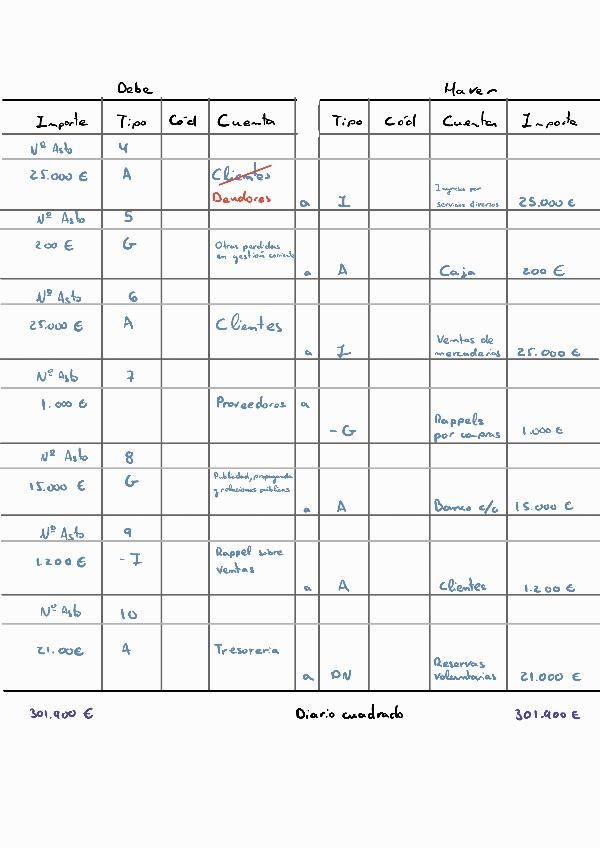 Debe Haver
Importe Tipo Cód Cuenta Tipo Cód Cuenta Importe
Nº Asto 4
25.000 € A Clientes
Deudores a I Ingresos por
servicios diversos 25.000 €
Nº Asto 5
200 € G Otras perdidas
en gestión corriente
a A Caja 200 €
Nº Asto 6
25.000 € A Clientes
a I Ventas de
mercaderias 25.000 €
Nº Asto 7
1.000 € Proveedores a
- G Rappels
por compras 1.000 €
Nº Asto 8
15.000 € G Publicidad, propaganda
y relaciones públicas
a A Banco c/c 15.000 €
Nº Asto 9
1.200 € - I Rappel sobre
ventas
a A Clientes 1.200 €
Nº Asto 10
21.00€ A Tresoreria
a PN Reservas
voluntarias 21.000 €
301.900 € Diario cuadrado 301.900 €